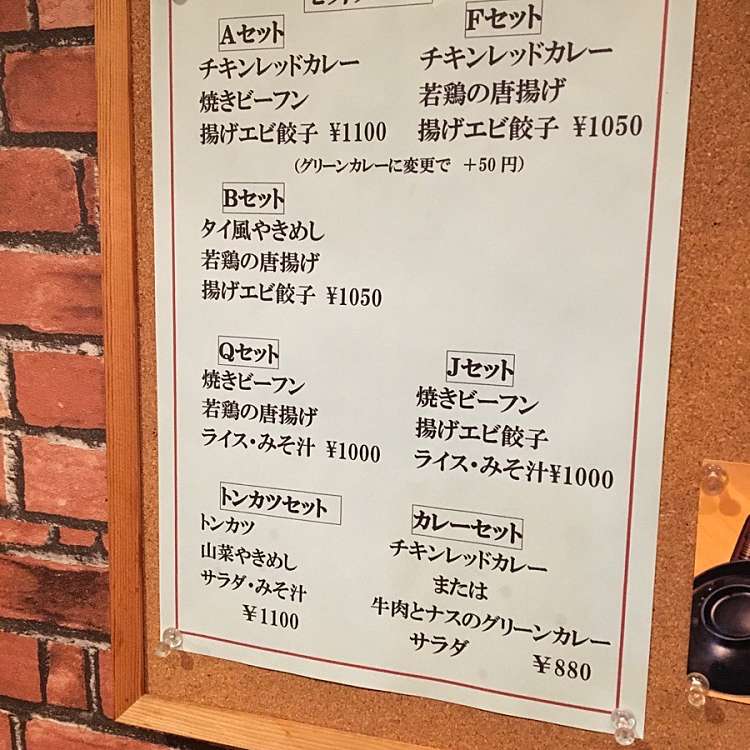 Aセット
チキンレッドカレー
焼きビーフン
揚げエビ餃子 ¥1100
Fセット
チキンレッドカレー
若鶏の唐揚げ
揚げエビ餃子 ¥1050
(グリーンカレーに変更で +50円)
Bセット
タイ風やきめし
若鶏の唐揚げ
揚げエビ餃子 ¥1050
Qセット
焼きビーフン
若鶏の唐揚げ
ライス・みそ汁 ¥1000
Jセット
焼きビーフン
揚げエビ餃子
ライス・みそ汁¥1000
トンカツセット
トンカツ
山菜やきめし
サラダ・みそ汁
¥1100
カレーセット
チキンレッドカレー
または
牛肉とナスのグリーンカレー
サラダ ¥880